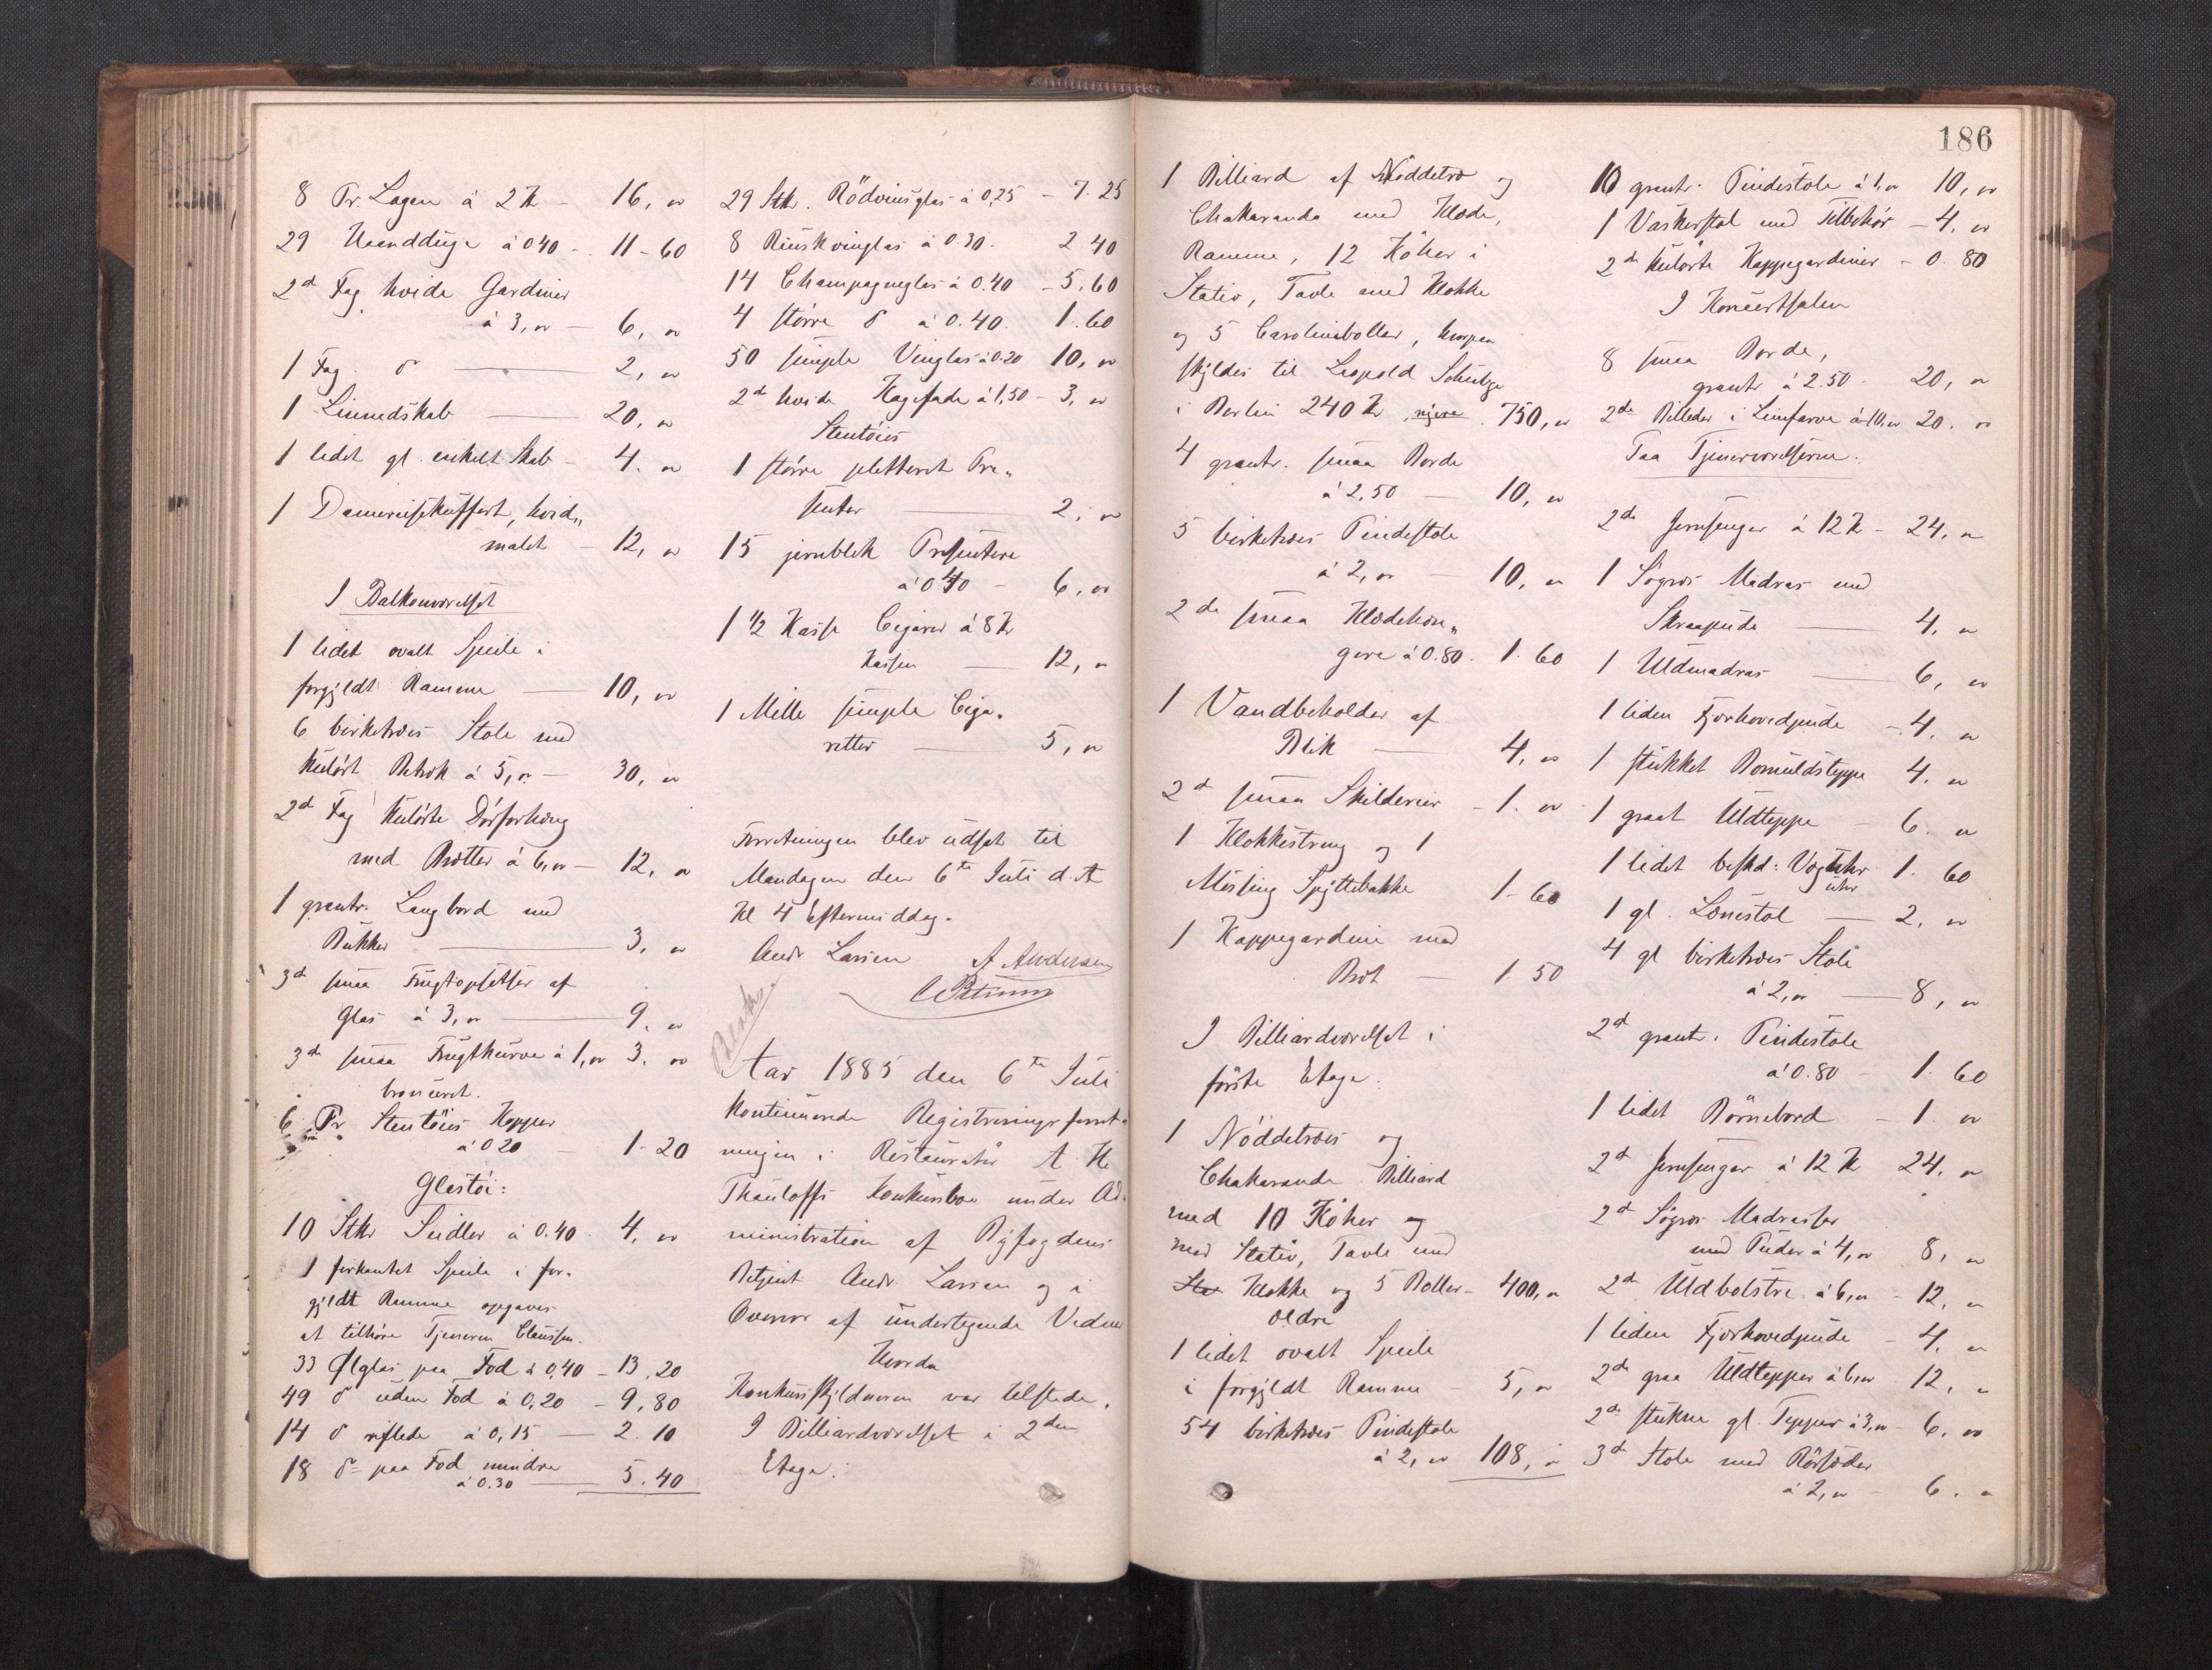 8 Pr. Lagen á 2 Kr - 16, "
29 Haandduge á 0 40 - 11 - 60
2de Fag hvide Gardiner
á 3, " - 6, "
1 Fag do - 2, "
1 Linnedskab - 20, "
1 lidet gl. enkelt Skab - 4. "
1 Damereisekuffert, hvid„
malet - 12, "
I Balkonværelset
1 lidet ovalt Speile i
forgyldt Ramme - 10, "
6 birketræes Stole med
kulört Betræk á 5, " - 30, "
2de Fag kulörte Dörforhæng
med Brætter á 6, " - 12, "
1 grantr. Langbord med
Bukker - 3, "
3de smaa Frugtopsatser af
Glas á 3, " - 9. "
3de smaa Frugtkurve á 1, " 3. "
bronceret.
6 Pr Stentöies Kopper
á 0 20 - 1 - 20
Glastöi:
10 Stkr Seidler á 0.40 - 4, "
1 firkantet Speile i for-
gyldt Ramme opgaves
at tilhöre Tjeneren Claussen.
33 Ølglas paa Fod á 0,40 - 13.20
49 do uden Fod á 0,20 - 9,80
14 do riflede á 0,15 - 2.10
18 do paa Fod mindre
á 0.30 - 5.40
29 Stkr. Rödvinsglas á 0,25 - 7.25
8 Rinskvinglas á 0.30 - 2 40
14 Champagneglas á 0.40 - 5,60
4 större do á 0.40. 1.60
50 simple Vinglas á 0.20 10, "
2de hvide Kagefade á 1,50 - 3, "
Stentöies
1 större pletteret Pre„
senter - 2, "
15 jernblik Presentere
á 0 40 - 6, "
1 1/2 Kasse Cigarer á 8 Kr
Kassen - 12, "
1 Mille simple Ciga-
retter - 5, "
Forretningen blev udsat til
Mandagen den 6te Juli d. A
Kl 4 Eftermiddag.
Andr Larsen A Andersen
Aar 1885 den 6te Juli
kontinuerede Registreringsforret-
ningen i Restauratör A. H.
Thauloffs Konkursboe under Ad-
ministration af Byfogdens
Betjent Andr. Larsen og i
Overvær af undertegnede Vidner
Hvorda
Konkursskyldneren var tilstede.
I Billiardværelset i 2den
Etage:
186
1 Billiard af Nöddetræ og
Chakaranda med Klæde,
Ramme, 12 Köher i
Stativ, Tavle med Klokke
og 5 Carolineboller, hvorpaa
skyldes til Leopold Schulze
i Berlin 240 Kr 750, "
4 grantr. smaa Borde
á 2,50 - 10, "
5 birketræes Pindestole
á 2, " - 10, "
2de smaa Klædehæn„
gere á 0.80. 1.60
1 Vandbeholder af
Blik - 4, "
2de smaa Skilderier - 1. "
1 Klokkestreng og 1
Messing Spyttebakke 1-60
1 Kappegardin med
Bræt - 1.50
I Billiardværelset i
förste Etage:
1 Nöddetræes og
Chakaranda Billiard
med 10 Köher og
med Stativ, Tavle med
Klokke og 5 Boller - 400, "
ældre
1 lidet ovalt Speile
i forgyldt Ramme - 5, "
54 birketræes Pindestole
á 2, " 108, "
10 grantr. Pindestole á 1, " 10, "
1 Vaskerstol med Tilbehör - 4. "
2de kulörte Kappegardiner - 0.80
I Koncertsalen
8 smaa Borde,
grantr á 2.50 - 20, "
2de Billeder i Limfarve á 10, " 20. "
Paa Tjenerværelserne:
2de Jernsenger á 12 Kr - 24, "
1 Sögræs Madras med
Skraapude - 4, "
1 Uldmadras - 6, "
1 liden Fjærhovedpude - 4. "
1 stukket Bomuldsteppe 4. "
1 graat Uldteppe - 6. "
1 lidet beskd: Væguhr 1.60
uhr
1 gl. Lænestol - 2. "
4 gl birketræes Stole
á 2, " - 8, "
2de grantr. Pindestole
á 0.80 - 1.60
1 lidet Börnebord - 1. "
2de Jernsenger á 12 Kr 24. "
2de Sögræs Madrasser
med Puder á 4, " 8, "
2de Uldbolstre á 6, " - 12, "
1 liden Fjærhovedpude - 4. "
2de graa Uldtepper á 6, " 12, "
2de stukne gl. Tepper á 3, " - 6. "
3de Stole med Rörsæder
á 2, " - 6. "